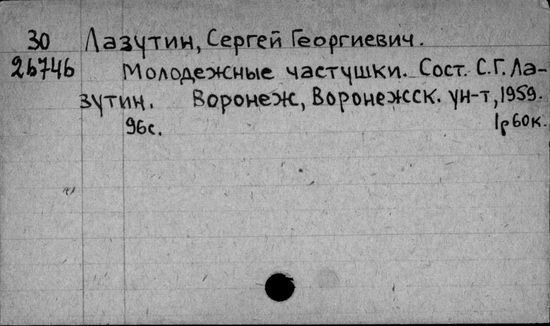 30 Лазутин, Сергей Георгиевич.
26746 Молодежные частушки. Сост. С.Г. Ла-
зутин. Воронеж, Воронежск. ун-т, 1959.
96с. 1р60к.